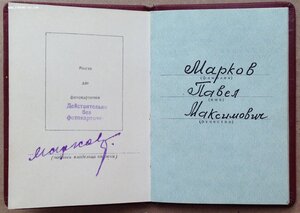 Место
для
фотокарточки
Действительно
без
фотокарточки
Марков
(личная подпись владельца)
Марков
(фамилия)
Павел
(имя)
Максимович
(отчество)